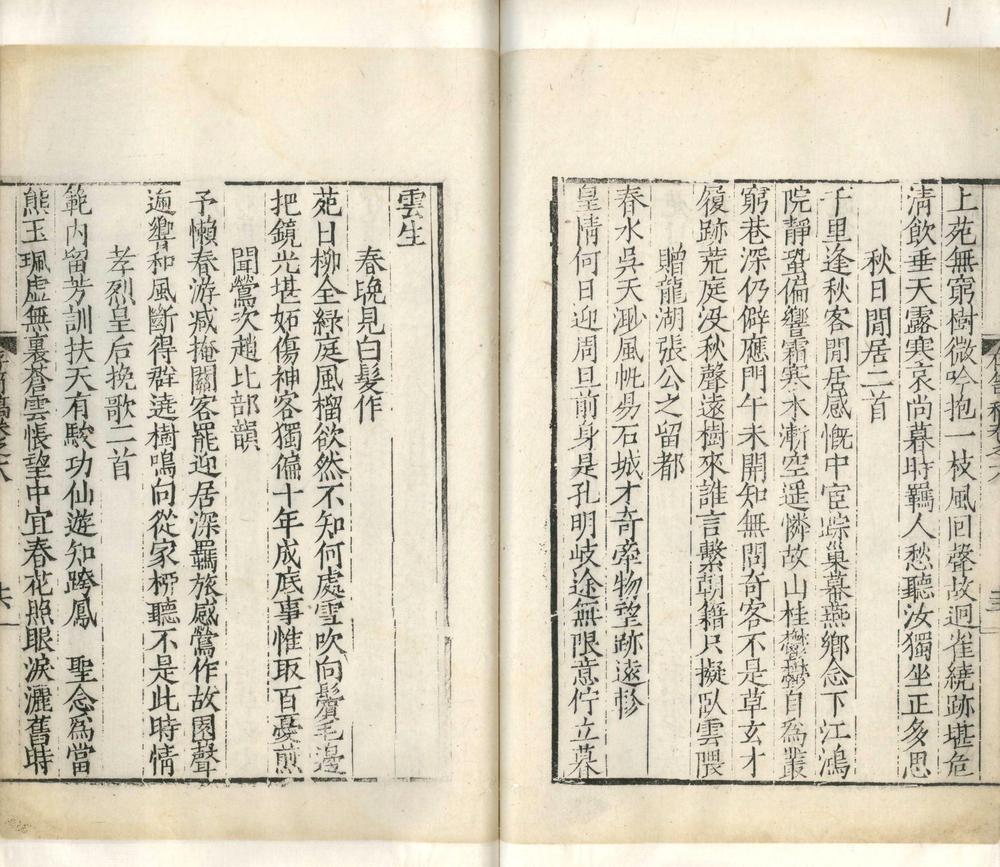 上苑無窮樹微吟抱一枝風回聲故迥雀繞跡堪危
清飲垂天露寒哀尚暮時羈人愁聽汝獨坐正多思
秋日閒居二首
千里逢秋客閒居感慨中宦踪巢幕燕鄉念下江鴻
院靜蛩偏響霜寒木漸空遥憐故山桂鬱鬱自為叢
窮巷深仍僻應門午未開知無問奇客不是草玄才
履跡荒庭没秋聲遠樹來誰言繫朝籍只擬臥雲隈
贈龍湖張公之留都
春水吳天遡風帆易石城才奇牽物望跡遠軫
皇情何日迎周旦前身是孔明歧途無限意佇立暮
雲生
春晚見白髮作
苑日柳全綠庭風榴欲然不知何處雪吹向鬢毛邊
把鏡光堪妬傷神客獨偏十年成底事惟取百憂煎
聞鶯次趙比部韻
予懶春游减掩關客罷迎居深羈旅感鶯作故園聲
迥響和風斷得群遶樹鳴向從家柳聽不是此時情
孝烈皇后挽歌二首
範内留芳訓扶天有駿功仙遊知跨鳳　聖念為當
熊玉珮虛無裏蒼雲悵望中宜春花照眼淚灑舊時